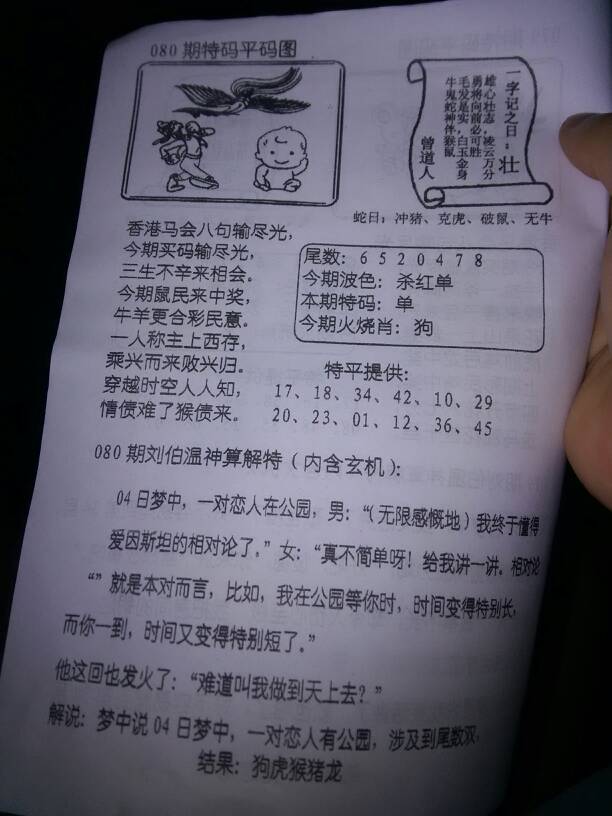 080期特码平码图
一字记之曰：壮
雄心壮志，凌云万分
勇将向前必可胜
毛发是实，白玉金身
牛鬼蛇神伴，猴鼠
曾道人
蛇日：冲猪、克虎、破鼠、无牛
香港马会八句输尽光，
今期买码输尽光，
三生不辛来相会。
今期鼠民来中奖，
牛羊更合彩民意。
一人称主上西存，
乘兴而来败兴归。
穿越时空人人知，
情债难了猴债来。
尾数：6 5 2 0 4 7 8
今期波色：杀红单
本期特码：单
今期火烧肖：狗
特平提供：
17、18、34、42、10、29
20、23、01、12、36、45
080期刘伯温神算解特（内含玄机）：
04日梦中，一对恋人在公园，男：“（无限感慨地）我终于懂得
爱因斯坦的相对论了。”女：“真不简单呀！给我讲一讲。相对论
“”就是本对而言，比如，我在公园等你时，时间变得特别长，
而你一到，时间又变得特别短了。”
他这回也发火了：“难道叫我做到天上去？”
解说：梦中说04日梦中，一对恋人有公园，涉及到尾数双，
结果：狗虎猴猪龙